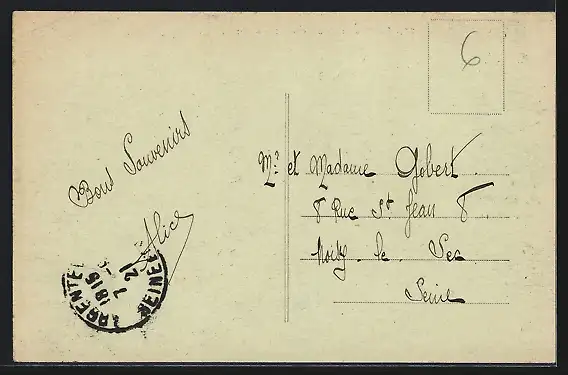 6
Bons Souvenirs
Alice
Mr et Madame Gobert.
8 Rue St Jean 8
Noisy. le. Sec
Seine
ARENTE
1815
7 -5
21
SEINE